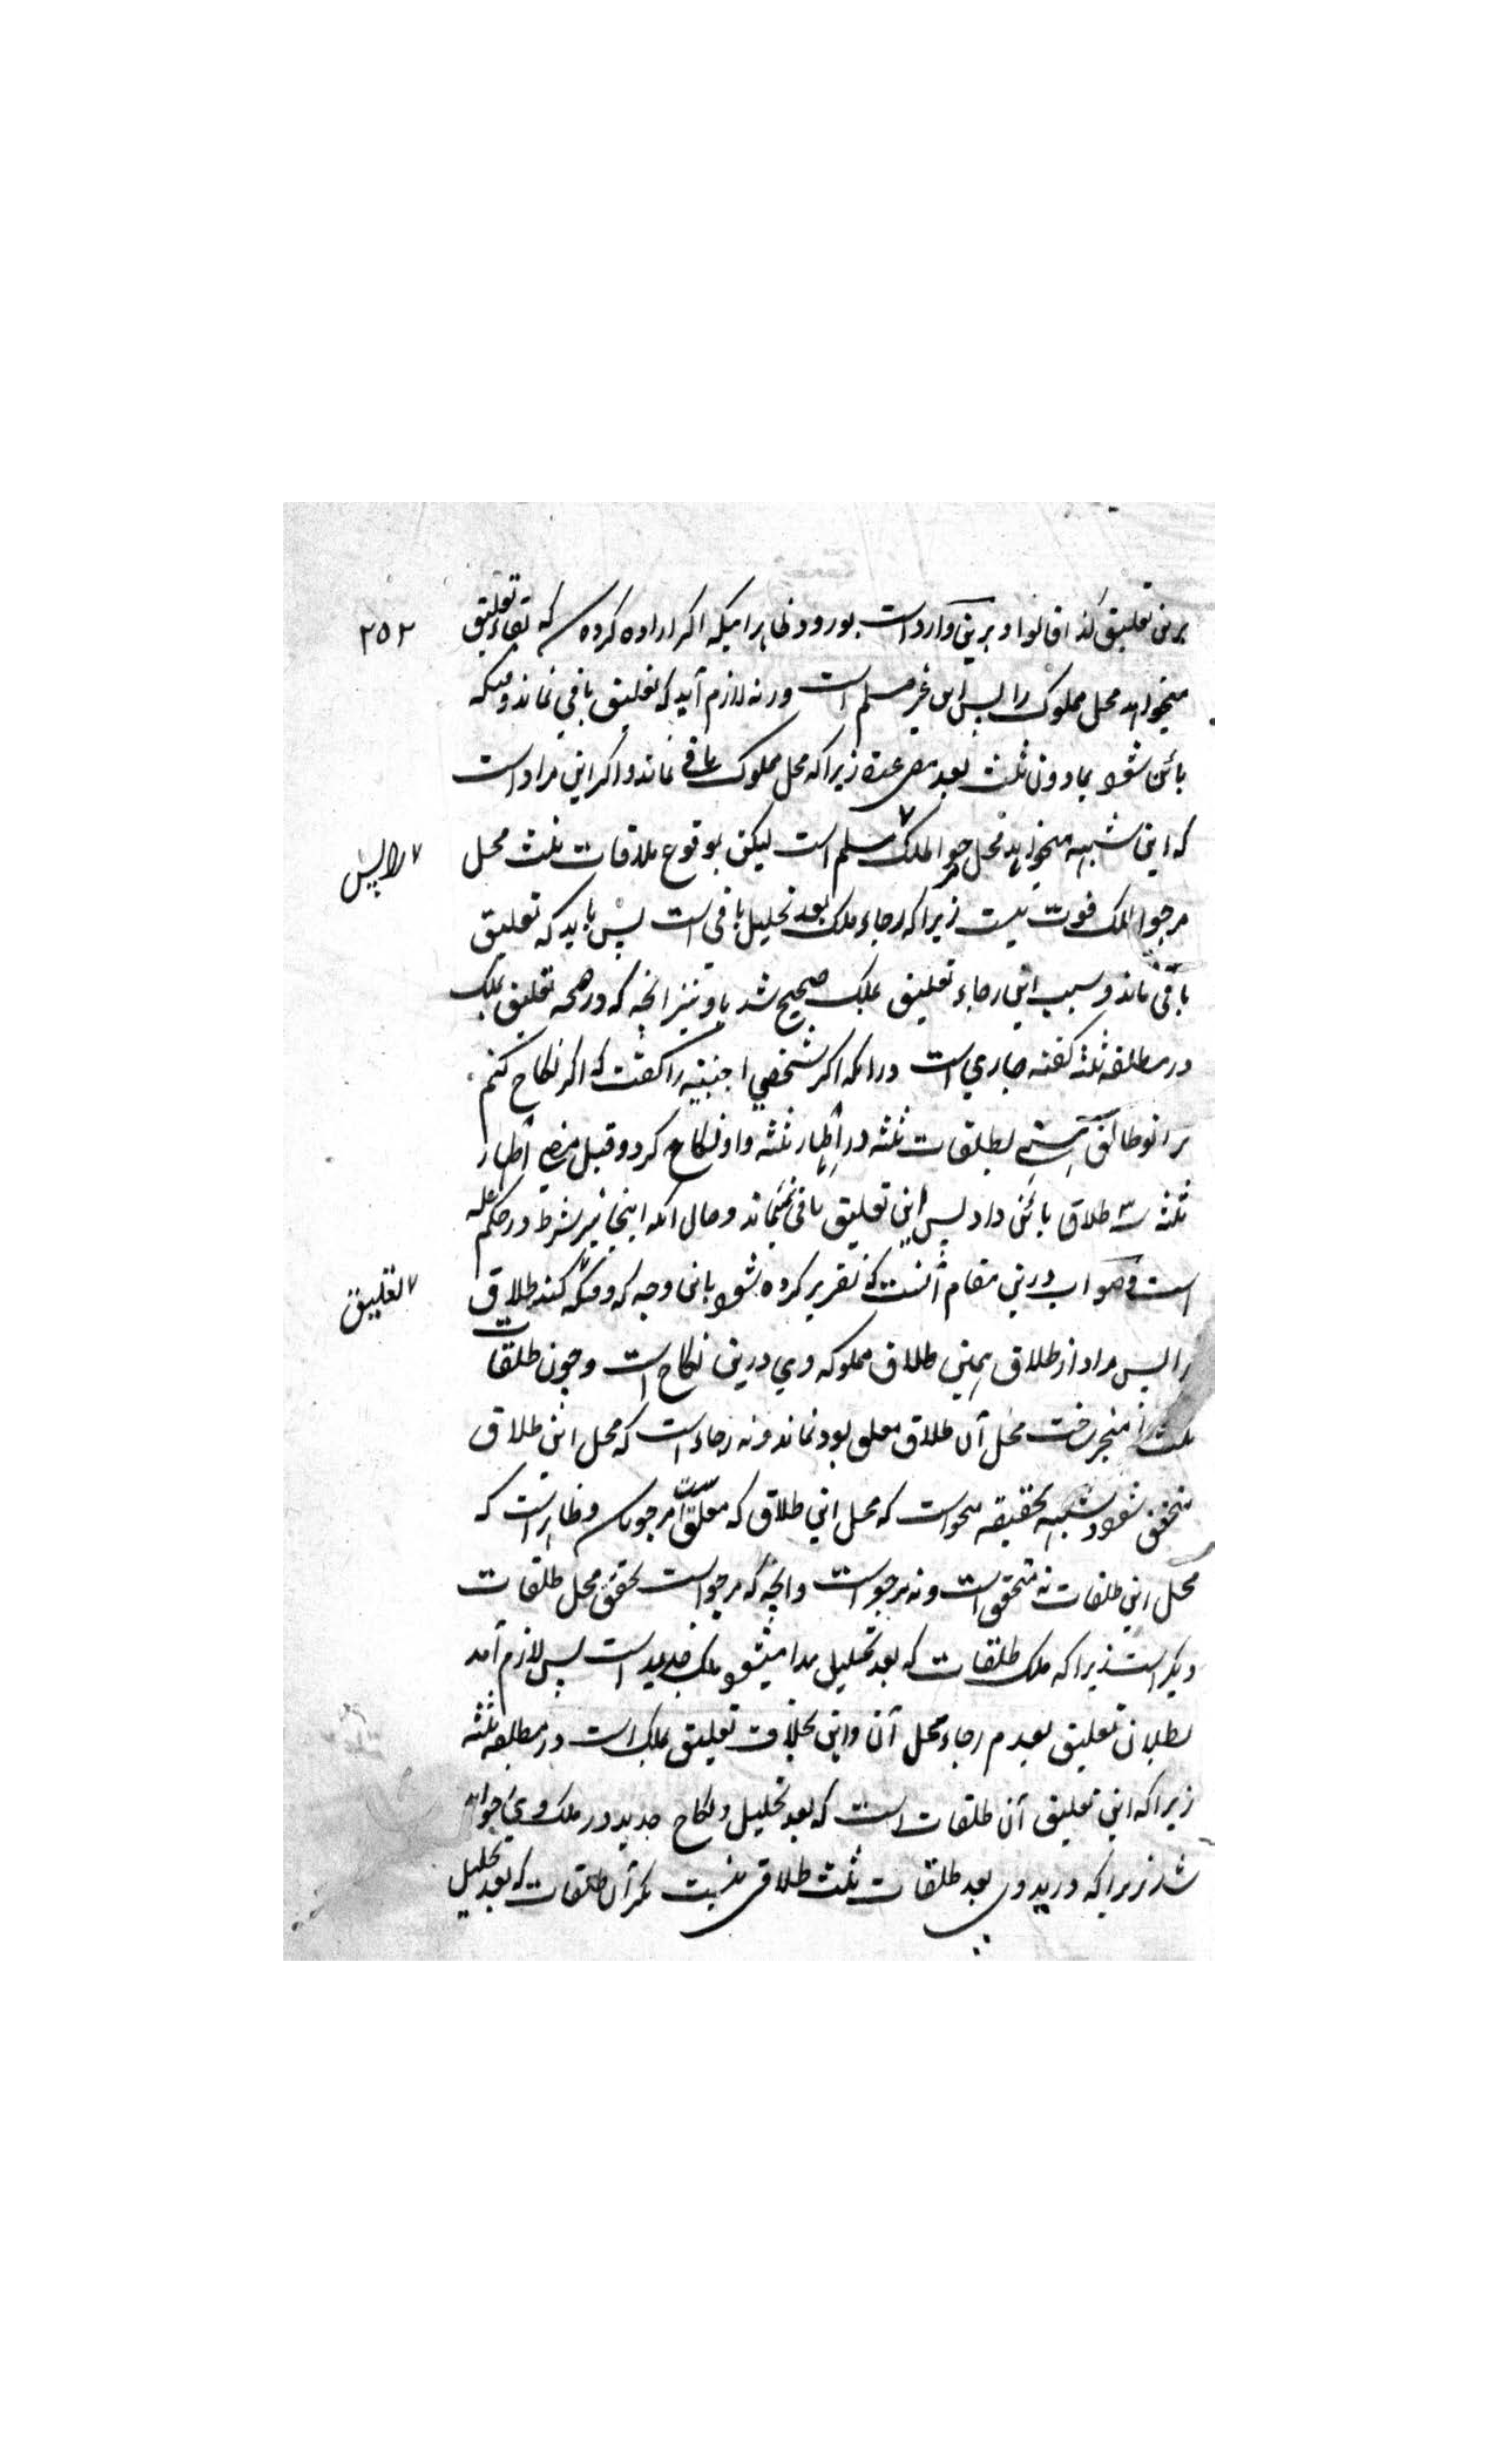 برین تعلیق کذا قالوا و برین وارد است بورود ظاهرا میکه اکر اراده کرده که بقاء تعلیق
۲۵۲
میخواهد محل مملوک را پس این غیر مسلم است ورنه لازم آید که تعلیق باقی نماند وقتیکه
بائن شود بمادون ثلث بعد مضی عدة زیرا که محل مملوک باقی نماند و اکر این مراد است
که این شبهه میخواهد محل مرجو الملک مسلم است لیکن بوقوع طلاقات ثلث محل
را پس
مرجو الملک فوت نیست زیرا که رجاء ملک بعد تحلیل باقی است پس باید که تعلیق
باقی ماند و سبب این رجاء تعلیق بملک صحیح شد و نیز انچه که در صحة تعلیق بملک
در مطلقه ثلثه کفته جاری است در انکه اکر شخصی اجنبیه را کفت که اکر نکاح کنم
ترا تو طالق هستی بطلقات ثلثه در اطهار ثلثه و او نکاح کرد و قبل مضی اطهار
ثلثه سه طلاق بائن داد پس این تعلیق باقی نمیماند و حال انکه اینجا نیز شرط در حکم علة
است و صواب درین مقام آنست که تقریر کرده شود باین وجه که وقتیکه کند طلاق
تعلیق
را پس مراد از طلاق همین طلاق مملوکه وی درین نکاح است و چون طلقات
ثلث را منجز ساخت محل آن طلاق معلق بود نماند و نه رجاء است که محل این طلاق
متحقق شود و شبهه بحقیقه میخواست که محل این طلاق که معلق است مرجو باشد و ظاهر است که
محل این طلقات نه متحقق است و نه مرجو است و انچه که مرجو است تحقق محل طلقات
دیکر است زیرا که ملک طلقات که بعد تحلیل پیدا میشود ملک جدید است پس لازم آمد
بطلان تعلیق بعدم رجاء محل آن و این بخلاف تعلیق بملک است در مطلقه ثلثه
زیرا که این تعلیق آن طلقات است که بعد تحلیل و نکاح جدید در ملک وی خواهد
شد زیرا که در ید وی بعد طلقات ثلث طلاقی نیست مکر آن طلقات که بعد تحلیل